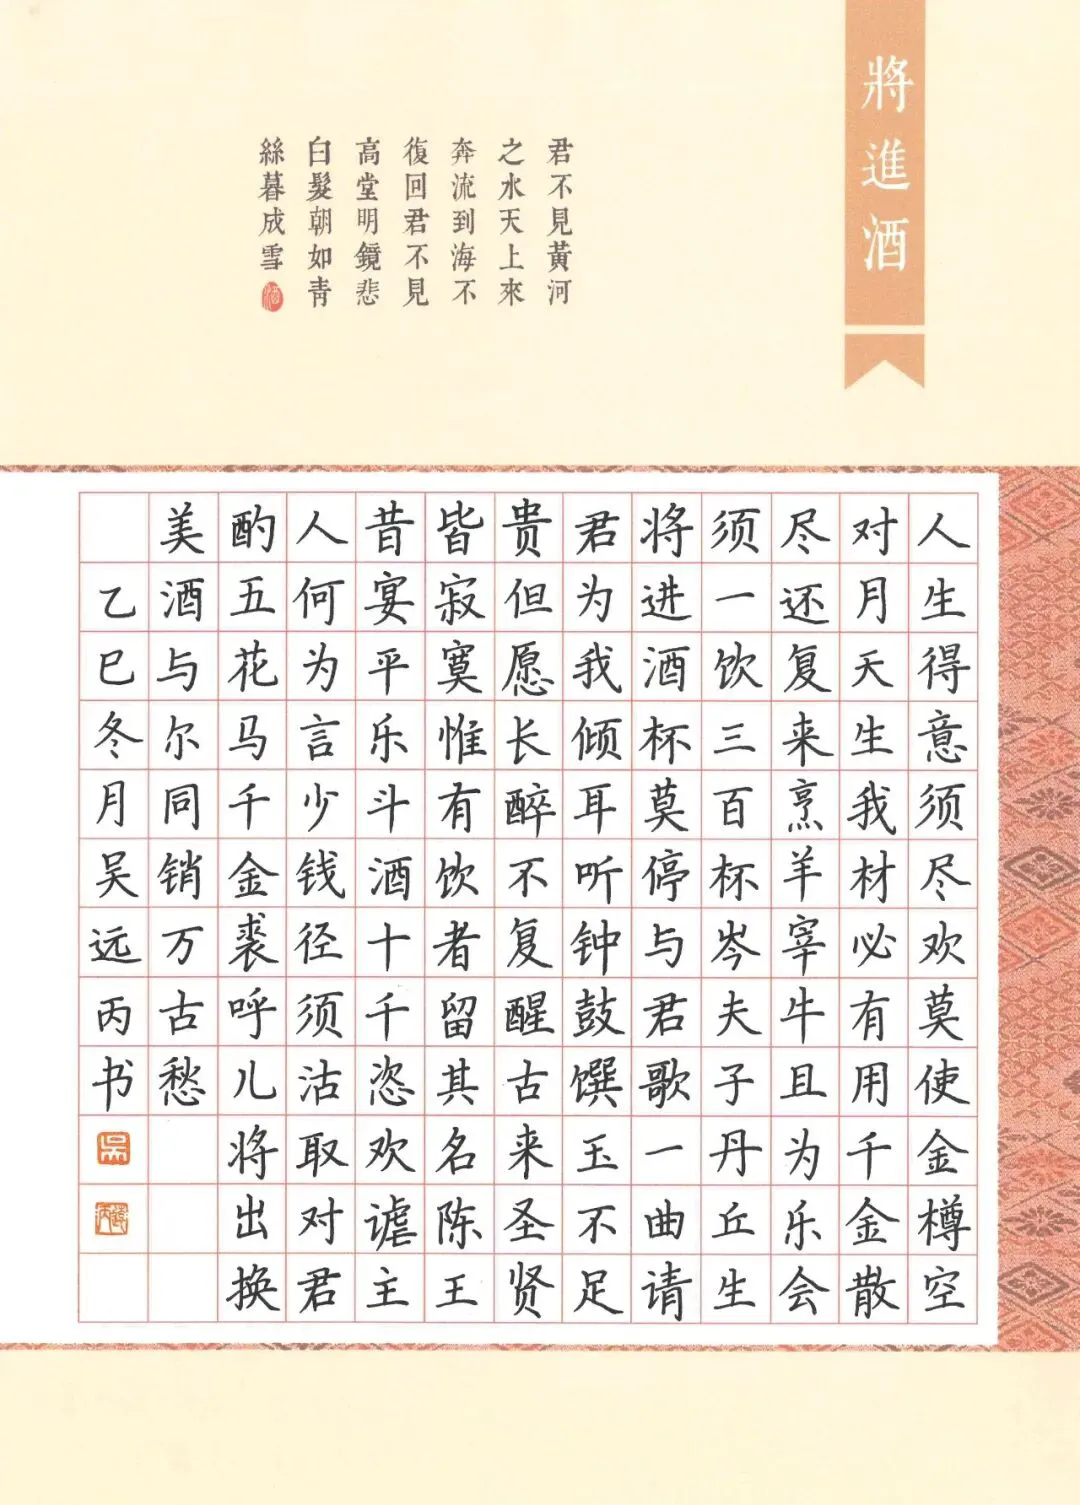 將進酒
君不見黃河
之水天上來
奔流到海不
復回君不見
高堂明鏡悲
白髮朝如青
絲暮成雪
酒
人生得意须尽欢莫使金樽空
对月天生我材必有用千金散
尽还复来烹羊宰牛且为乐会
须一饮三百杯岑夫子丹丘生
将进酒杯莫停与君歌一曲请
君为我倾耳听钟鼓馔玉不足
贵但愿长醉不复醒古来圣贤
皆寂寞惟有饮者留其名陈王
昔宴平乐斗酒十千恣欢谑主
人何为言少钱径须沽取对君
酌五花马千金裘呼儿将出换
美酒与尔同销万古愁
乙巳冬月吴远丙书
吴